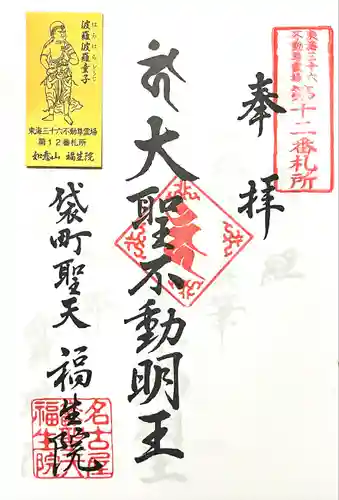 東海三十六
不動尊霊場
第十二番札所
奉拝
大聖不動明王
袋町聖天
福生院
名古屋
福生院
波羅波羅童子
はらはらどうじ
東海三十六不動尊霊場
第12番札所
如意山 福生院